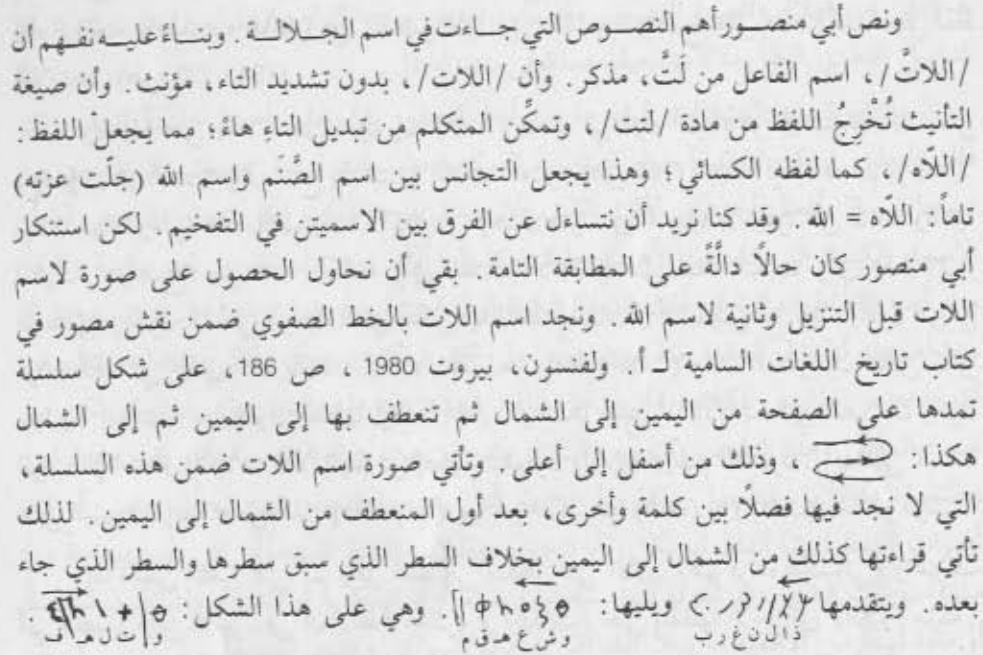 ونص أبي منصور أهم النصوص التي جاءت في اسم الجلالة. وبناءً عليه نفهم أن
/اللاتّ/، اسم الفاعل من لَتَّ، مذكر. وأن /اللات/، بدون تشديد التاء، مؤنث. وأن صيغة
التأنيث تُخْرِجُ اللفظ من مادة /لتت/، وتمكِّن المتكلم من تبديل التاءِ هاءً؛ مما يجعلُ اللفظ:
/اللّاه/، كما لفظه الكسائي؛ وهذا يجعل التجانس بين اسم الصَّنَم واسم الله (جلّت عزته)
تاماً: اللّاه = الله. وقد كنا نريد أن نتساءل عن الفرق بين الاسميتن في التفخيم. لكن استنكار
أبي منصور كان حالًا دالَّةً على المطابقة التامة. بقي أن نحاول الحصول على صورة لاسم
اللات قبل التنزيل وثانية لاسم الله. ونجد اسم اللات بالخط الصفوي ضمن نقش مصور في
كتاب تاريخ اللغات السامية لـ أ. ولفنسون، بيروت 1980 ، ص 186، على شكل سلسلة
تمدها على الصفحة من اليمين إلى الشمال ثم تنعطف بها إلى اليمين ثم إلى الشمال
هكذا: ، وذلك من أسفل إلى أعلى. وتأتي صورة اسم اللات ضمن هذه السلسلة،
التي لا نجد فيها فصلًا بين كلمة وأخرى، بعد أول المنعطف من الشمال إلى اليمين. لذلك
تأتي قراءتها كذلك من الشمال إلى اليمين بخلاف السطر الذي سبق سطرها والسطر الذي جاء
بعده. ويتقدمها ويليها: . وهي على هذا الشكل: .
ذ ا ل ن غ ر ب و ش ع هـ ق م و ا ت ل هـ ف